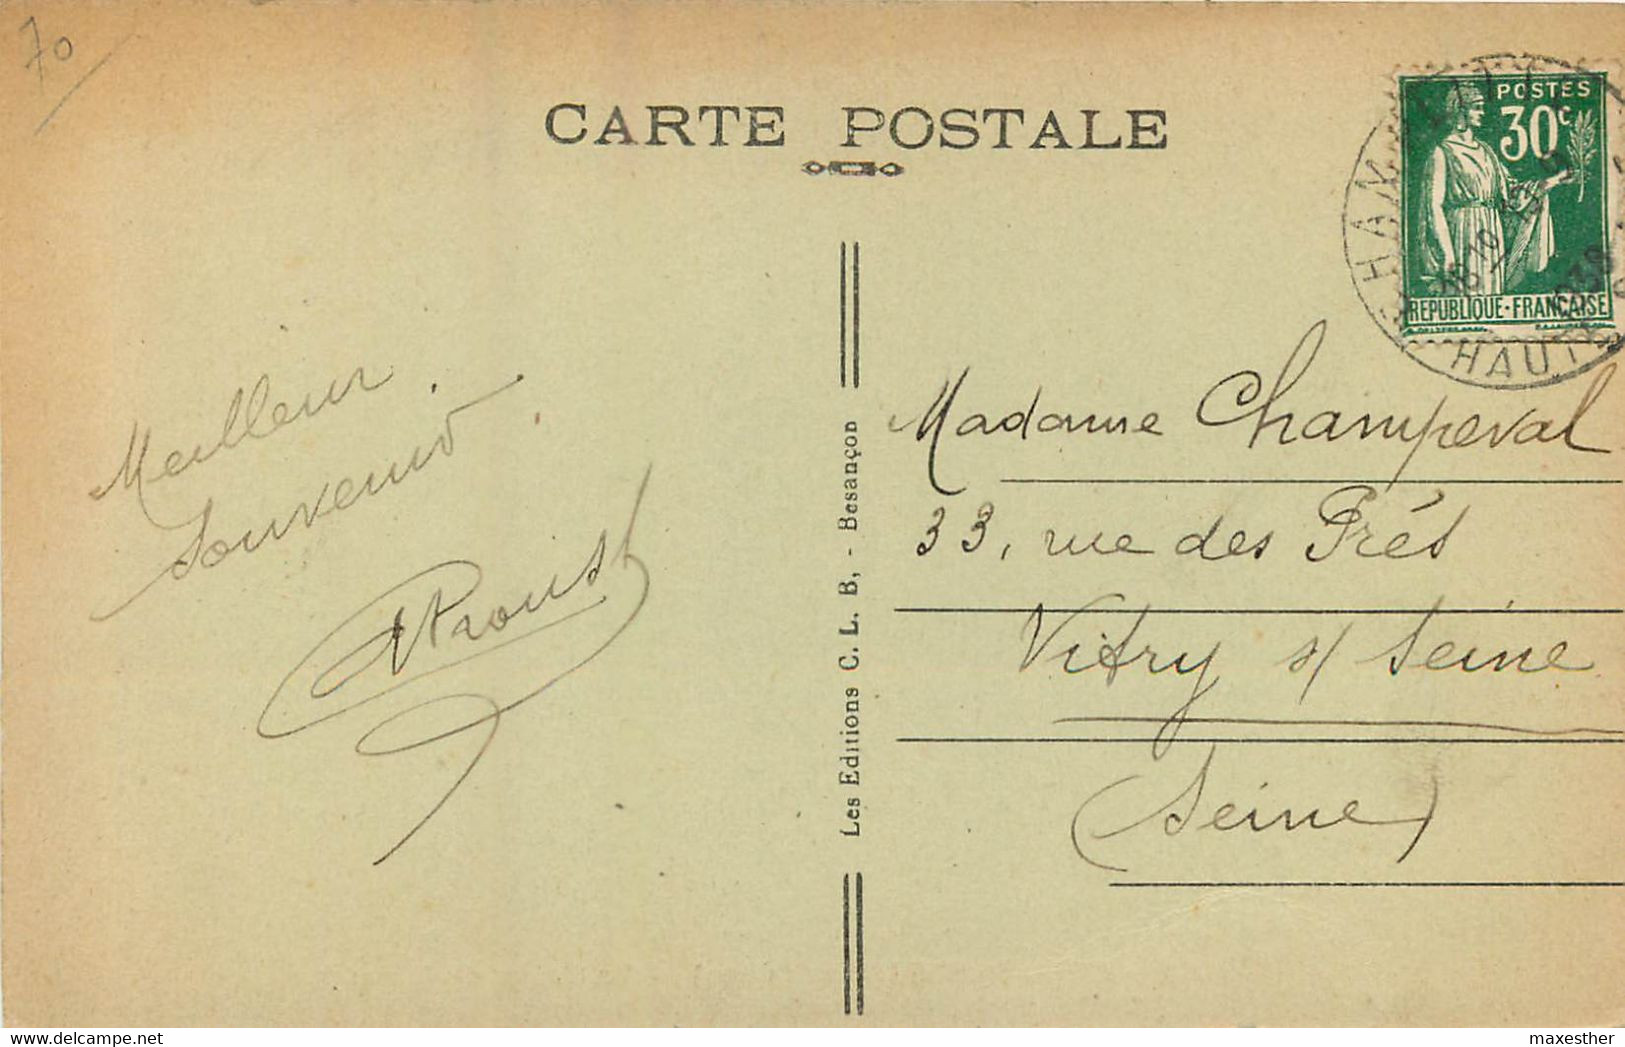 70
CARTE POSTALE
POSTES
30c
REPUBLIQUE-FRANÇAISE
HAUTE
Meilleur
Souvenir
Proust
Les Editions C. L. B, - Besançon
Madame Champeval
33, rue des Prés
Vitry s/ Seine
(Seine)
maxesther